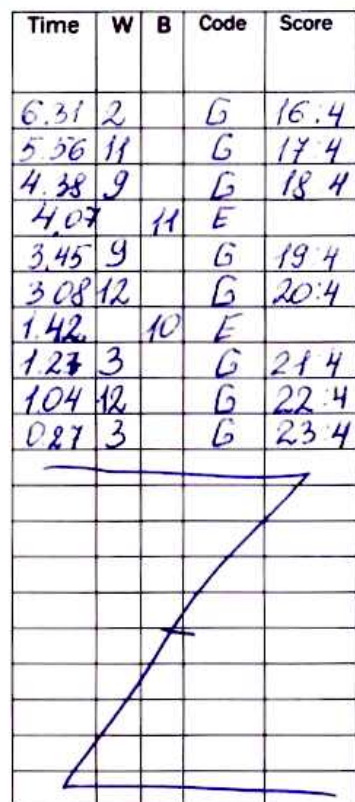 Time W B Code Score
6.31 2 G 16:4
5.56 11 G 17:4
4.38 9 G 18 4
4.07 11 E
3.45 9 G 19:4
3 08 12 G 20:4
1.42 10 E
1.27 3 G 21 4
1.04 12 G 22:4
0.27 3 G 23:4